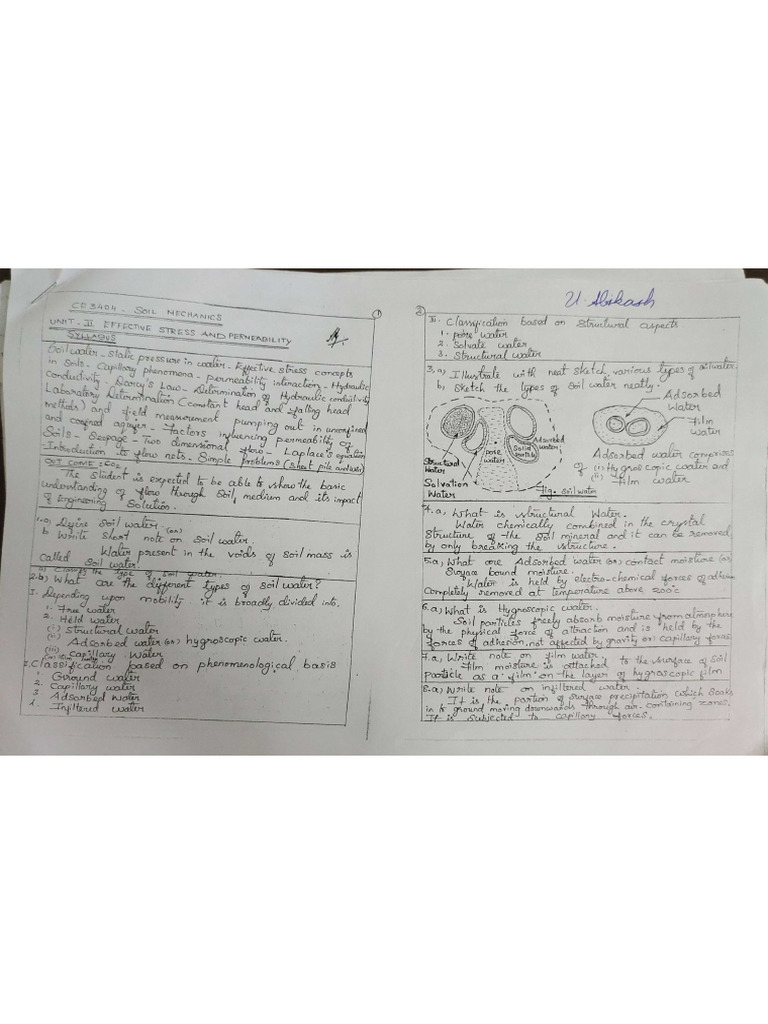 ①
CE3404 - SOIL MECHANICS
UNIT-II EFFECTIVE STRESS AND PERMEABILITY
SYLLABUS
Soil water - static pressure in water - Effective stress concepts
in soils - Capillary phenomena - permeability interaction - Hydraulic
conductivity - Darcy's Law - Determination of Hydraulic conductivity
Laboratory Determination (constant head and falling head
methods) and field measurement pumping out in unconfined
and confined aquifer - Factors influencing permeability of
Soils - Seepage - Two dimensional flow - Laplace's equation
Introduction to flow nets. Simple problems (sheet pile and weir)
OUT COME: CO2
The student is expected to be able to show the basic
understanding of flow through Soil medium and its impact
of Engineering Solution.
1.a) Define Soil water. (or)
b Write short note on Soil water.
Water present in the voids of Soil mass is
called Soil water.
2.a) the type of soil water.
2.b) What are the different types of Soil water?
I. Depending upon mobility it is broadly divided into.
1. Free water
2. Held water
(i) Structural water
(ii) Adsorbed water (or) hygroscopic water.
(iii) Capillary water
Classification based on phenomenological basis
1. Ground water
2. Capillary water
3 Adsorbed water
Infiltered water
②
U. Abikash
III. Classification based on Structural aspects.
1. pore water
2. Solvate water
3. Structural water
3.a) Illustrate with neat sketch various types of soilwater.
b, Sketch the types of Soil water neatly.
Adsorbed
Water
Film
water
Solid
Adsorbed
water
pore
water
Structural
Water
Solvation
Water
Fig. soil water
Adsorbed water comprises
of (i) Hygroscopic water and
(ii) Film water
4.a, What is structural Water.
Water chemically combined in the crystal
structure of the soil mineral and it can be removed
by only breaking the structure.
5a, What are Adsorbed water (or) contact moisture (or)
bound moisture.
Water is held by electro-chemical forces of
completely removed at temperature above 200°c
6.a) What is Hygroscopic water.
Soil particles freely absorb moisture from atmosphere
by the physical force of attraction and is held by the
forces of adhesion, not affected by gravity or capillary forces
7.a, Write note on film water.
Film moisture is attached to the surface of Soil
particle as a film on the layer of hygroscopic film
8.a) Write note on infiltered water
It is the portion of surface precipitation which soaks
in to ground moving downwards through air-containing zones.
It is subjected to capillary forces.